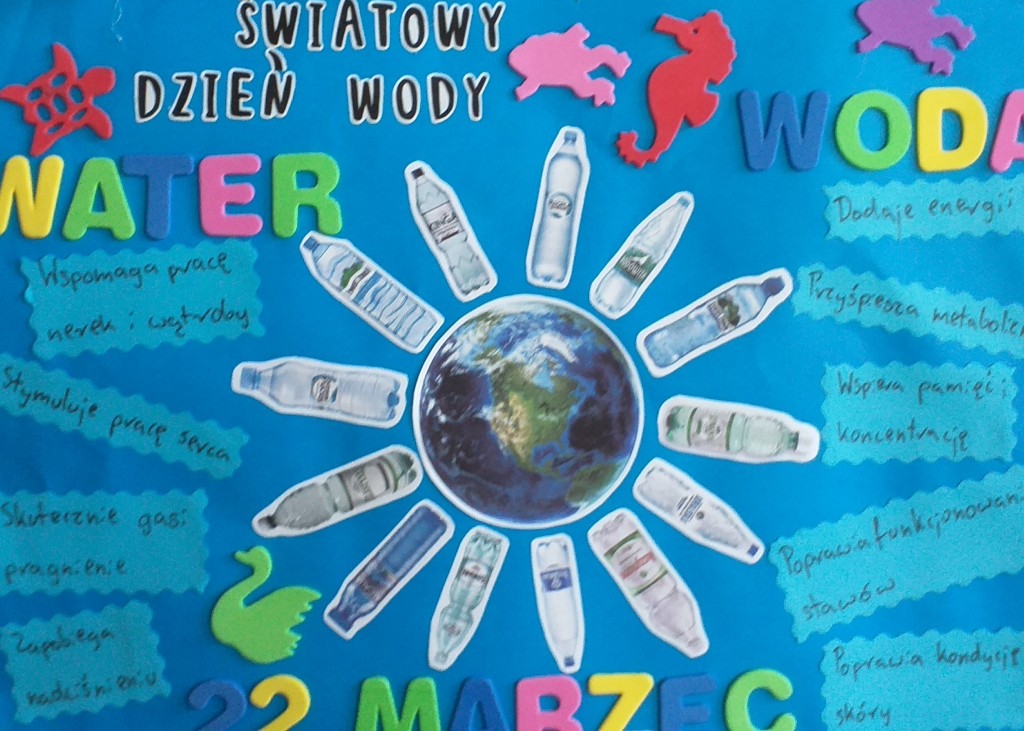 ŚWIATOWY
DZIEŃ WODY
WATER
WODA
Wspomaga pracę
nerek i wątroby
Stymuluje pracę serca
Skutecznie gasi
pragnienie
Zapobiega
nadciśnieniu
Dodaje energii
Przyśpiesza metaboliz
Wspiera pamięć i
koncentrację
Poprawia funkcjonowan
stawów
Poprawia kondycję
skóry
22 MARZEC